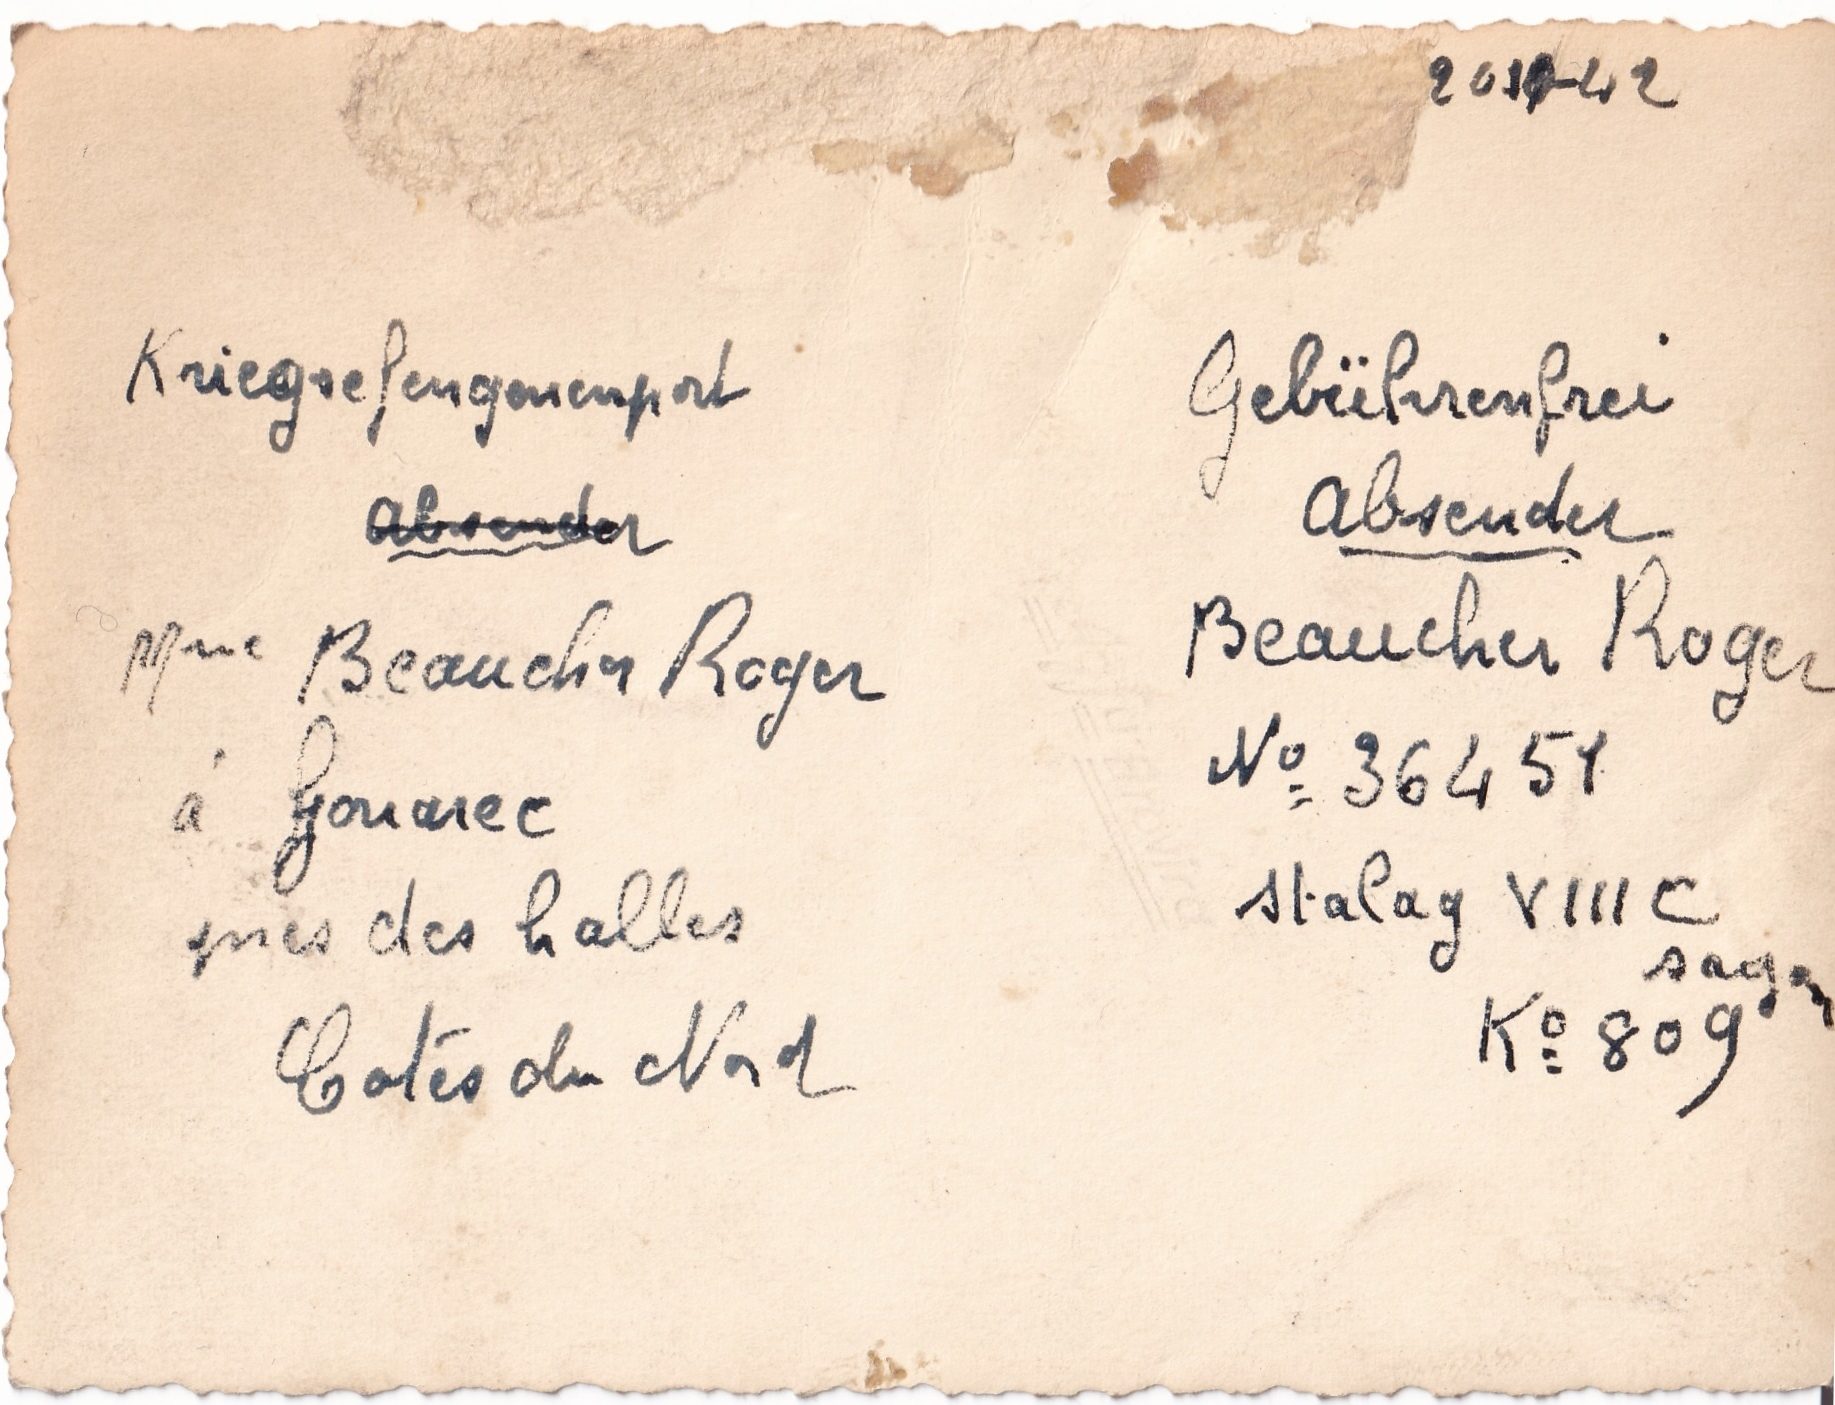 Kriegsefengenenport
absender
Mme Beaucher Roger
à Gouarec
pres des halles
Cotés du Nord
Gebührenfrei
Absender
Beaucher Roger
Nº 36451
stalag VIII C
sagan
Kº 809